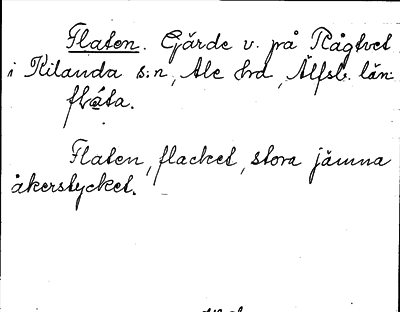 Flaten. Gärde v. på Rågtvet
i Kilanda s:n, Ale hrd, Älfsb. län.
flåta.
Flaten, flacket, stora jämna
åkerstycket.